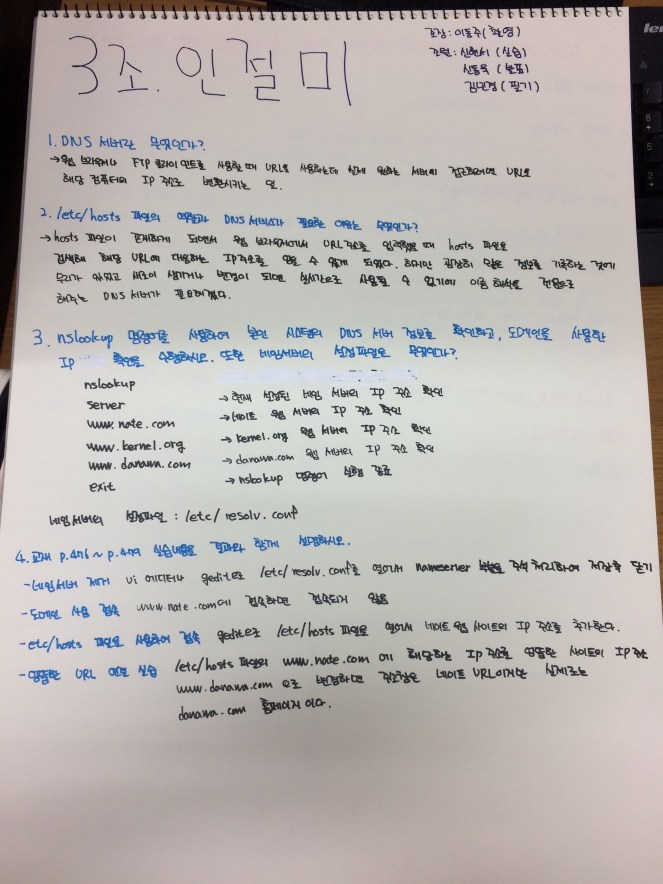 3조. 인절미
조장 : 이동수 (촬영)
조원 : 신현서 (실습)
신동욱 (발표)
김민정 (필기)
leno
1. DNS 서버란 무엇인가?
→ 웹 브라우저나 FTP 클라이언트를 사용할 때 URL을 사용하는데 실제 원하는 서버에 접근하려면 URL을
해당 컴퓨터의 IP 주소로 변환시키는 일.
2. /etc/hosts 파일의 역할과 DNS 서비스가 필요한 이유는 무엇인가?
→ hosts 파일이 존재하게 되면서 웹 브라우저에서 URL 주소를 입력했을 때 hosts 파일을
검색해 해당 URL에 대응하는 IP주소를 얻을 수 있게 되었다. 하지만 굉장히 많은 정보를 기록하는 것에
무리가 있었고 새로이 생기거나 변경이 되면 실시간으로 사용될 수 없기에 이름 해석을 전용으로
해주는 DNS 서버가 필요해졌다.
3. nslookup 명령어를 사용하여 본인 시스템의 DNS 서버 정보를 확인하고, 도메인을 사용한
IP 확인을 수행하시오. 또한 네임서버의 설정파일은 무엇인가?
nslookup
server → 현재 설정된 네임 서버의 IP 주소 확인
www.nate.com → 네이트 웹 서버의 IP 주소 확인
www.kernel.org → kernel.org 웹 서버의 IP 주소 확인
www.danawa.com → danawa.com 웹 서버의 IP 주소 확인
exit → nslookup 명령어 실행 종료
네임서버의 설정파일 : /etc/resolv.conf
4. 교재 p.476 ~ p.479 실습내용을 결과와 함께 설명하시오.
- 네임서버 제거 vi 에디터나 gedit으로 /etc/resolv.conf를 열어서 nameserver 부분을 주석 처리하여 저장후 닫기
- 도메인 사용 접속 www.nate.com에 접속하면 접속되지 않음
- etc/hosts 파일을 사용하여 접속 gedit으로 /etc/hosts 파일을 열어서 네이트 웹 사이트의 IP 주소를 추가한다.
- 엉뚱한 URL 연결 실습 /etc/hosts 파일의 www.nate.com에 해당하는 IP주소를 엉뚱한 사이트의 IP주소
www.danawa.com 으로 변경하면 주소창은 네이트 URL이지만 실제로는
danawa.com 홈페이지 이다.